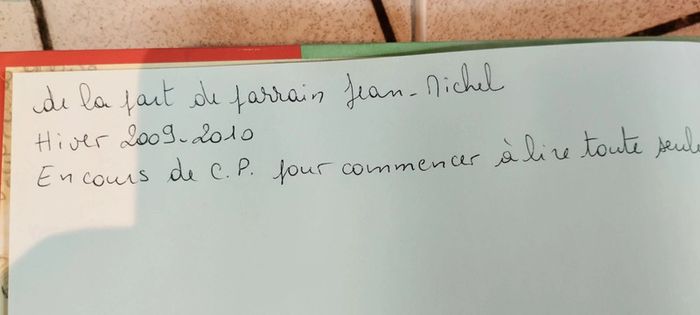 de la part de parrain Jean-Michel
Hiver 2009-2010
En cours de C.P. pour commencer à lire toute seule